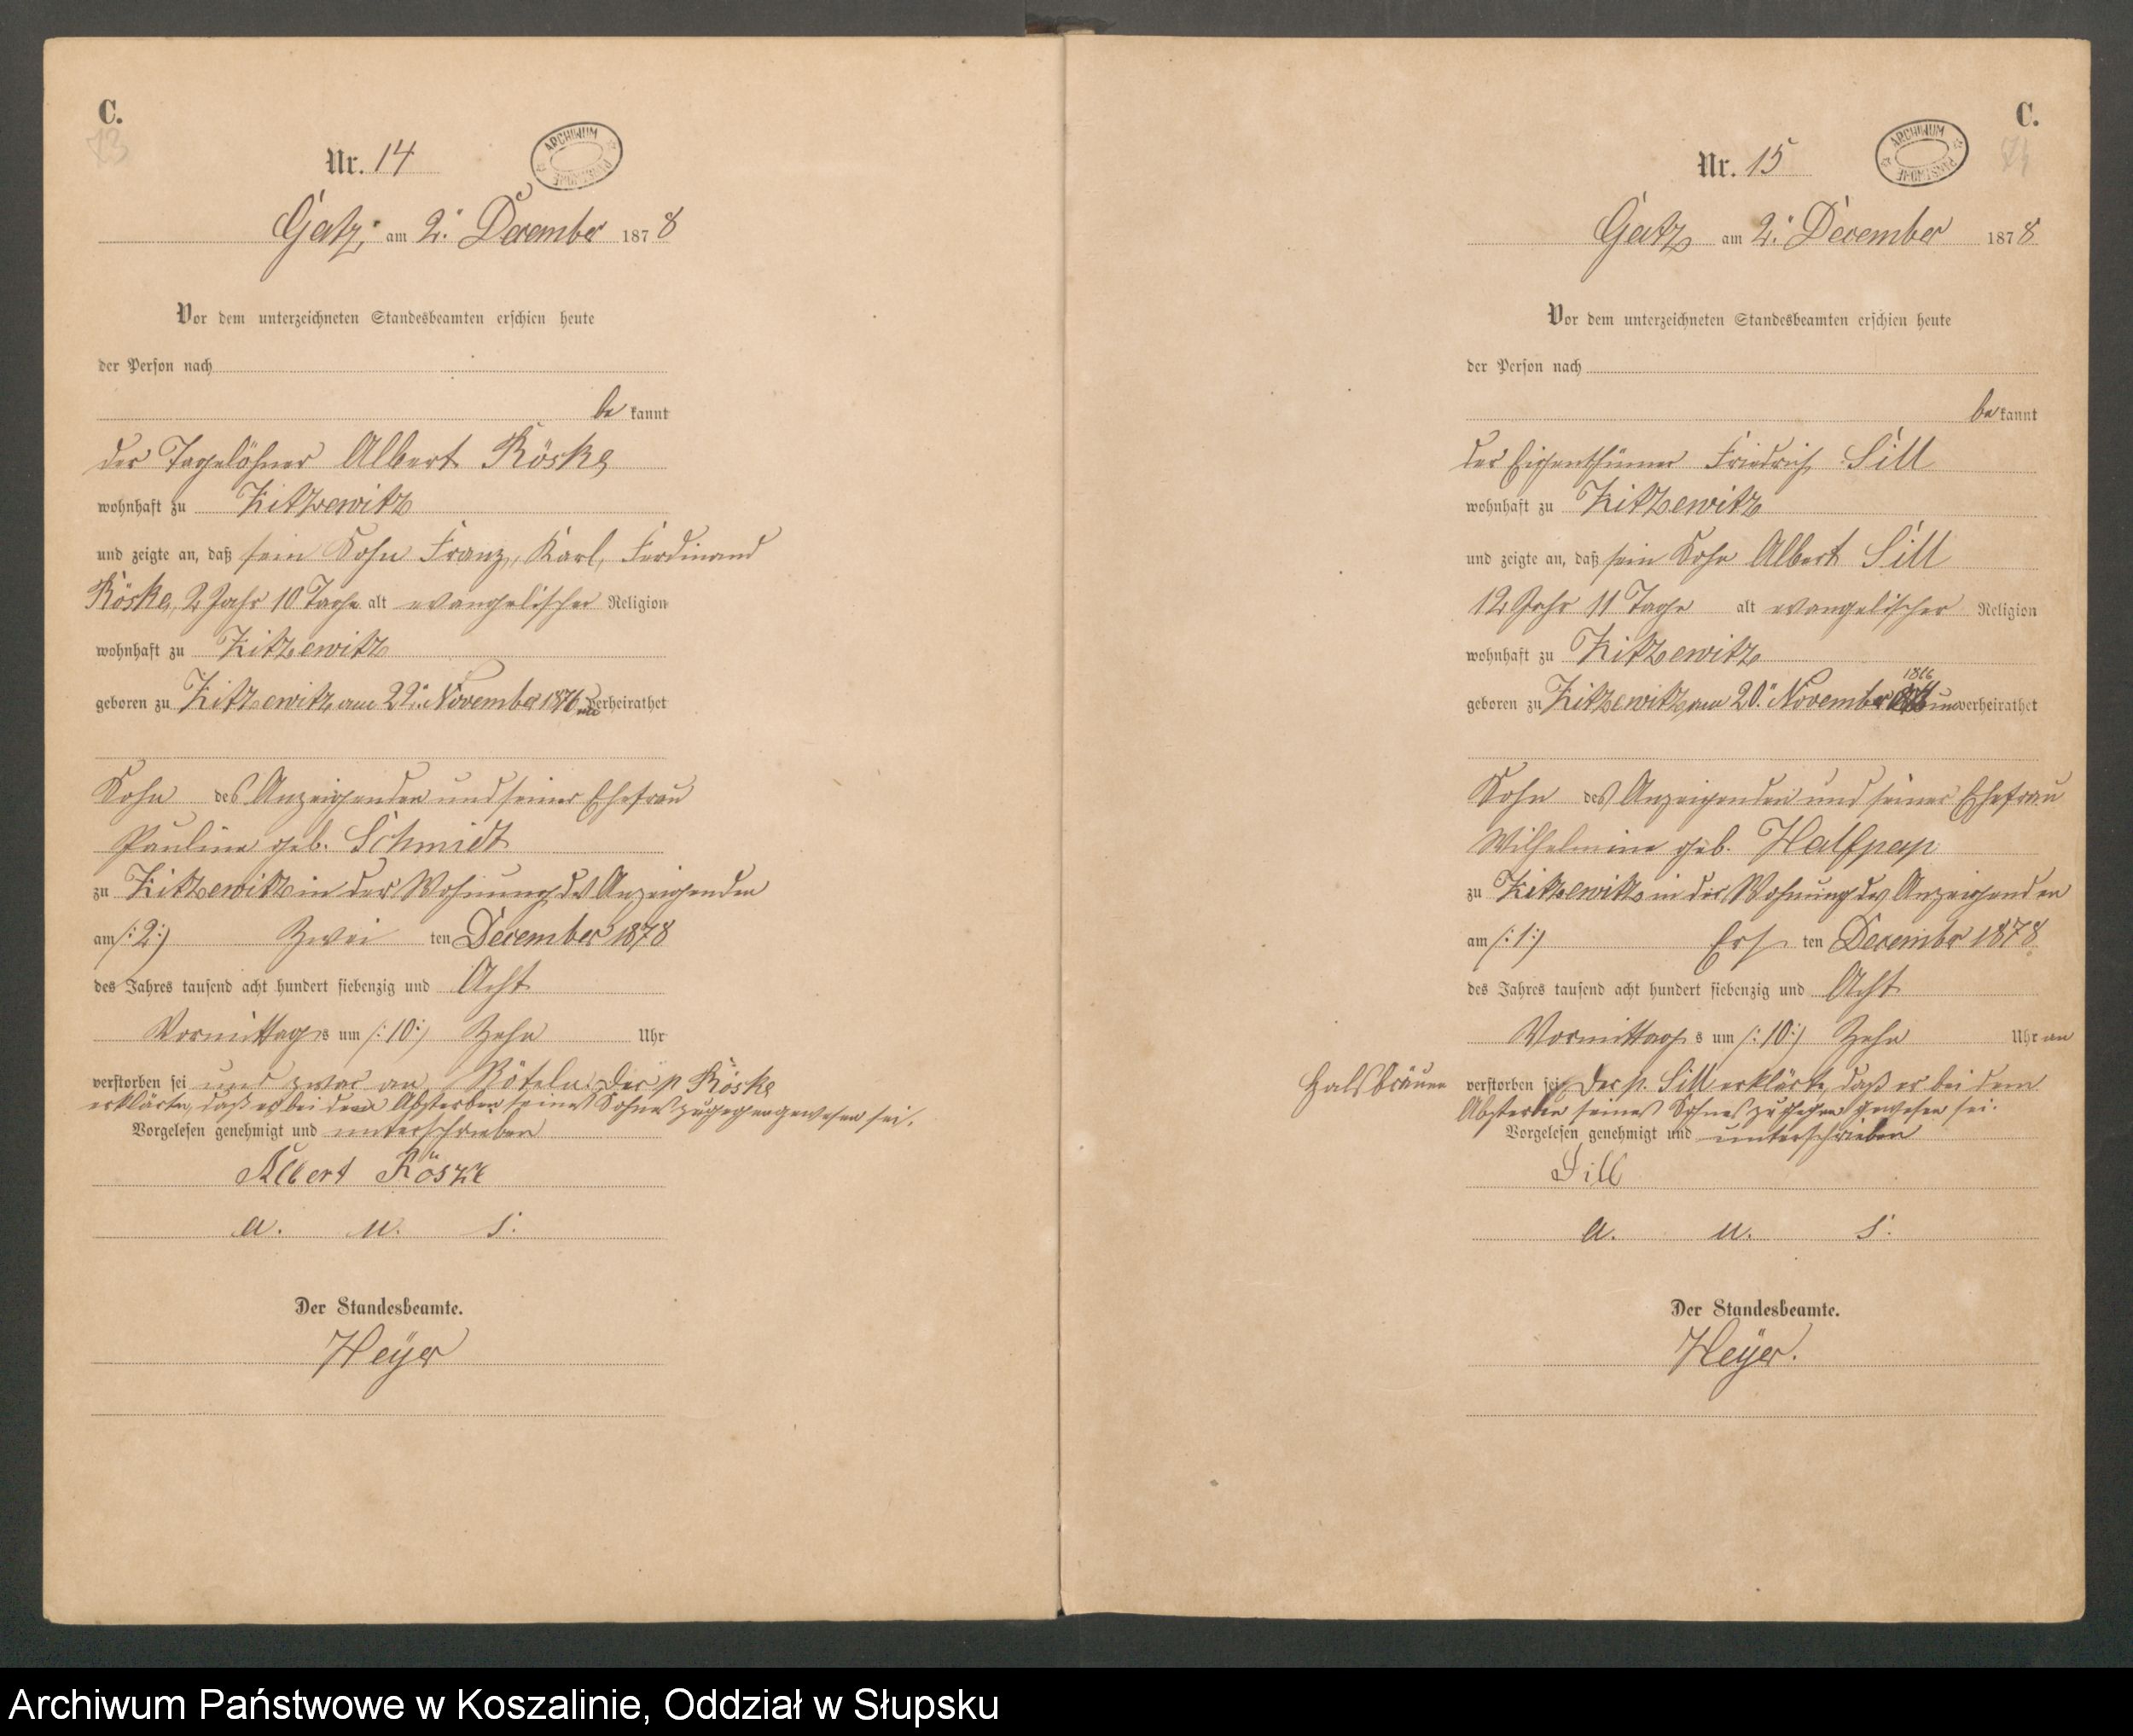 C.
73
Nr. 14
ARCHIWUM PAŃSTWOWE
Gatz, am 2. December 1878
Vor dem unterzeichneten Standesbeamten erschien heute
der Person nach
be kannt
der Tagelöhner Albert Röske
wohnhaft zu Zitzewitz
und zeigte an, daß sein Sohn Franz, Karl, Ferdinand
Röske, 2 Jahr 10 Tage alt evangelischer Religion
wohnhaft zu Zitzewitz
geboren zu Zitzewitz am 22. November 1876 unverheirathet
Sohn des Anzeigenden und seiner Ehefrau
Pauline geb. Schmidt
zu Zitzewitz in der Wohnung des Anzeigenden
am /:2:/ Zwei ten December 1878
des Jahres tausend acht hundert siebenzig und Acht
Vormittags um /:10:/ Zehn Uhr
verstorben sei und zwar an Röteln. Der p Röske
erklärte, daß er bei dem Absterben seines Sohnes zugegen gewesen sei.
Vorgelesen genehmigt und unterschrieben
Albert Röske
a. u. s.
Der Standesbeamte.
Heyer
C.
Nr. 15
ARCHIWUM PAŃSTWOWE
Gatz am 2. December 1878
Vor dem unterzeichneten Standesbeamten erschien heute
der Person nach
be kannt
der Eigenthümer Friedrich Sill
wohnhaft zu Zitzewitz
und zeigte an, daß sein Sohn Albert Sill
12 Jahr 11 Tage alt evangelischer Religion
wohnhaft zu Zitzewitz
1866
geboren zu Zitzewitz am 20. November unverheirathet
Sohn des Anzeigenden und seiner Ehefrau
Wilhelmine geb. Halfpap
zu Zitzewitz in der Wohnung des Anzeigenden
am /:1:/ Erst ten December 1878
des Jahres tausend acht hundert siebenzig und Acht
Vormittags um /:10:/ Zehn Uhr an
Halsbräune verstorben sei. Der p. Sill erklärte, daß er bei dem
Absterben seines Sohnes zugegen gewesen sei.
Vorgelesen genehmigt und unterschrieben
Sill
a. u. s.
Der Standesbeamte.
Heyer.
Archiwum Państwowe w Koszalinie, Oddział w Słupsku